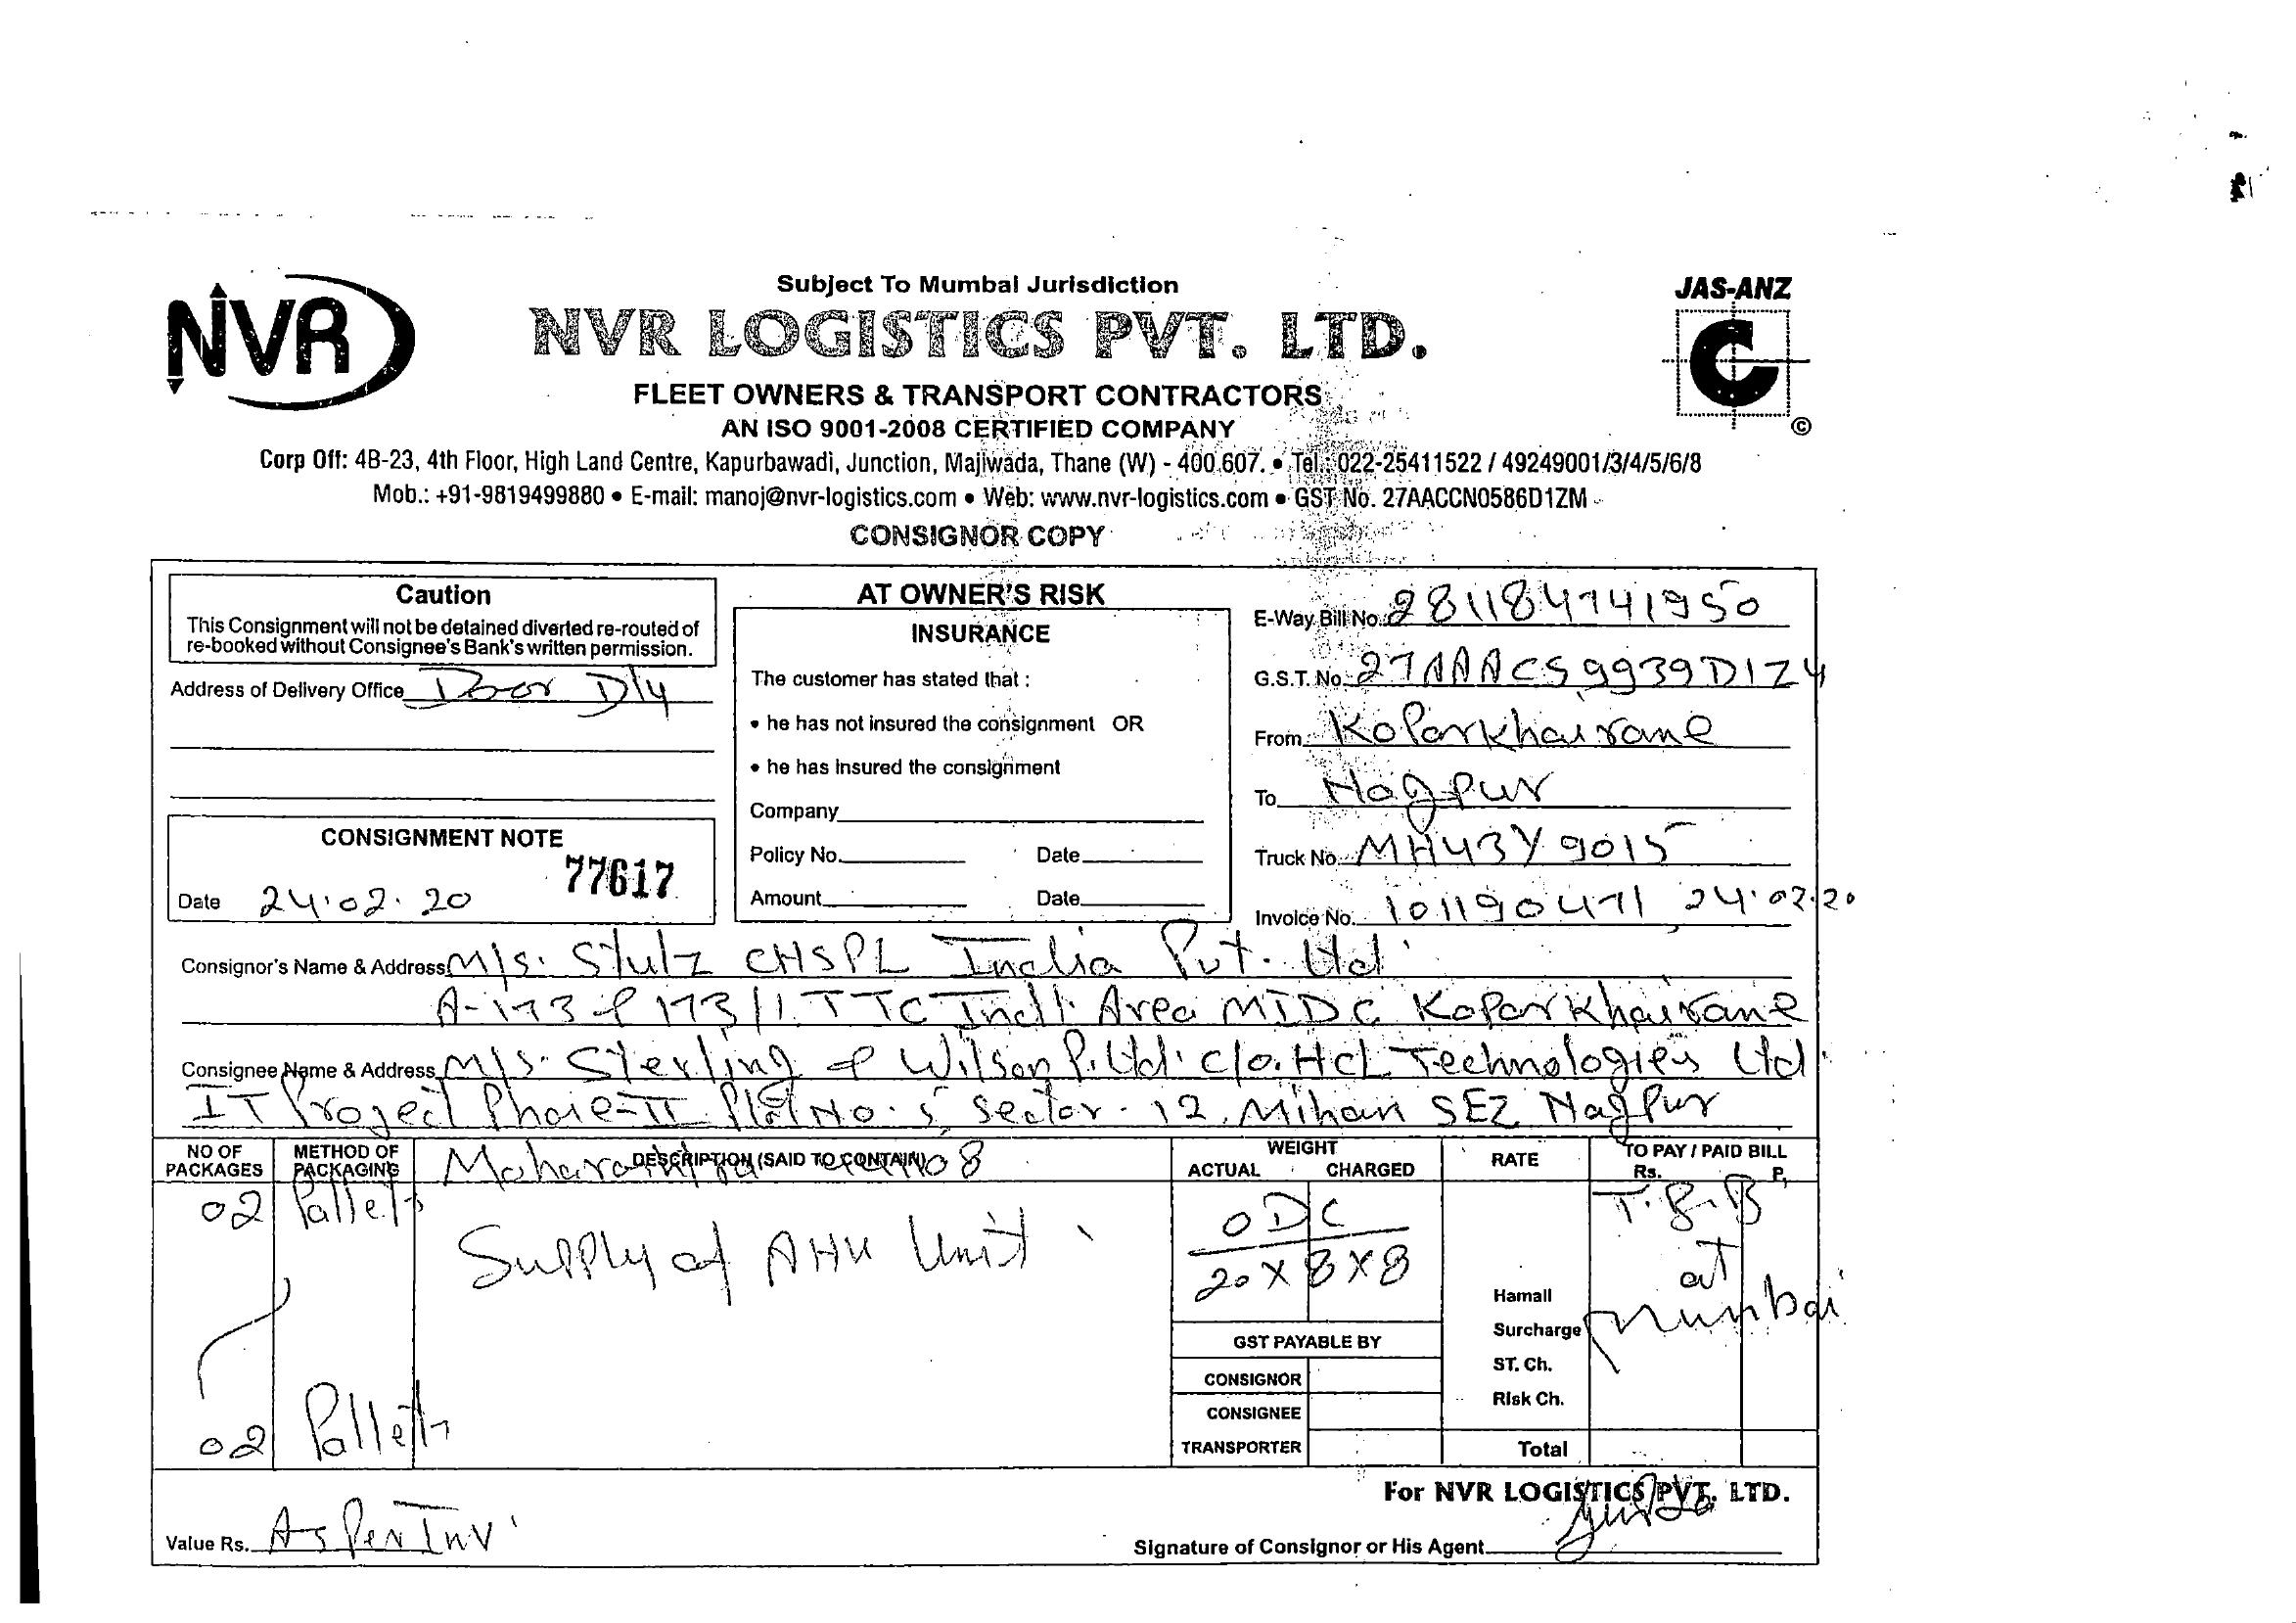 NVR
Subject To Mumbai Jurisdiction
NVR LOGISTICS PVT. LTD.
FLEET OWNERS & TRANSPORT CONTRACTORS
AN ISO 9001-2008 CERTIFIED COMPANY
JAS-ANZ
C
©
Corp Off: 4B-23, 4th Floor, High Land Centre, Kapurbawadi, Junction, Majiwada, Thane (W) - 400 607. • Tel.: 022-25411522 / 49249001/3/4/5/6/8
Mob.: +91-9819499880 • E-mail: manoj@nvr-logistics.com • Web: www.nvr-logistics.com • GST No. 27AACCN0586D1ZM
CONSIGNOR COPY
Caution
This Consignment will not be detained diverted re-routed of
re-booked without Consignee's Bank's written permission.
Address of Delivery Office Door Dly
CONSIGNMENT NOTE
77617
Date 24.02.20
AT OWNER'S RISK
INSURANCE
The customer has stated that :
• he has not insured the consignment OR
• he has insured the consignment
Company
Policy No. Date
Amount Date
E-Way Bill No. 281184741950
G.S.T. No. 27AAACS9939D1Z4
From Koparkhairane
To Nagpur
Truck No. MH43Y9015
Invoice No. 101190471 24.02.20
Consignor's Name & Address M/s. Stulz CHSPL India Pvt. Ltd.
A-173 & 173/1. TTC Indl. Area MIDC Koparkhairane
Consignee Name & Address M/s. Sterling & Wilson P. Ltd. C/o. HCL Technologies Ltd.
IT Project Phase-II Plot No. 5, Sector-12, Mihan SEZ Nagpur
Maharashtra 08
NO OF PACKAGES METHOD OF PACKAGING DESCRIPTION (SAID TO CONTAIN) WEIGHT ACTUAL CHARGED RATE TO PAY / PAID BILL Rs. P.
02 Pallets
Supply of AHU Unit
ODC
20 X 8 X 8
T.B.B
at
Mumbai
02 Pallets
GST PAYABLE BY
CONSIGNOR
CONSIGNEE
TRANSPORTER
Hamali
Surcharge
ST. Ch.
Risk Ch.
Total
Value Rs. As Per Inv.
For NVR LOGISTICS PVT. LTD.
Signature of Consignor or His Agent